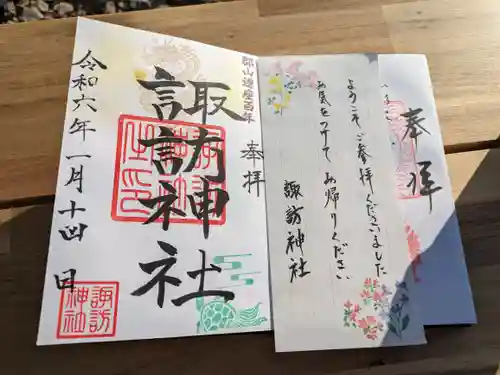 郡山遷座百年
奉拝
諏訪神社
令和六年一月十四日
諏訪
神社
ようこそご参拝くださいました
お気をつけてお帰りください
諏訪神社
奉拝